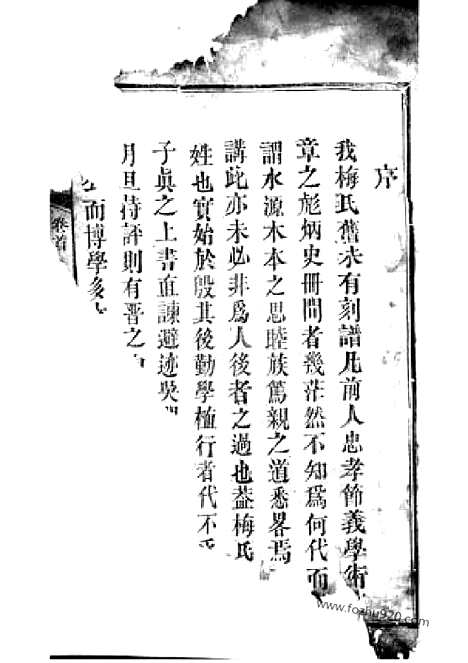 序
我梅氏舊未有刻譜凡前人忠孝節義學術
章之彪炳史冊間者幾茫然不知爲何代而
謂水源木本之思睦族篤親之道悉畧焉
講此亦未必非爲人後者之過也葢梅氏
姓也實始於殷其後勤學植行者代不乏
子眞之上書直諫避迹吳門
月旦持評則有晉之
而博學多
卷首
www.fozhu920.com